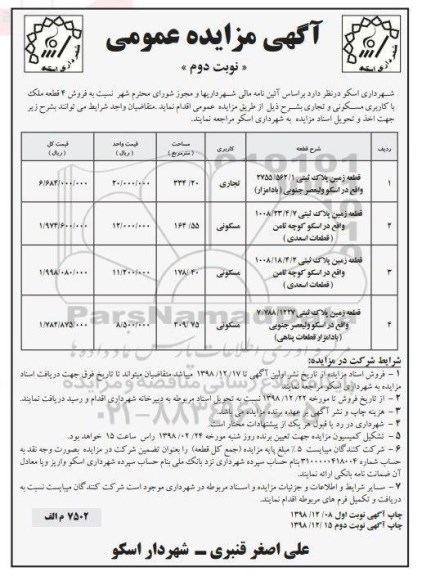 آگهی مزایده عمومی
« نوبت دوم »
شهرداری اسکو
شهرداری اسکو
شهرداری اسکو درنظر دارد براساس آئین نامه مالی شهرداریها و مجوز شورای محترم شهر نسبت به فروش ۴ قطعه ملک
با کاربری مسکونی و تجاری بشرح ذیل از طریق مزایده عمومی اقدام نماید .متقاضیان واجد شرایط می توانند بشرح زیر
جهت اخذ و تحویل اسناد مزایده به شهرداری اسکو مراجعه نمایند.
ردیف شرح قطعه کاربری مساحت (مترمربع) قیمت واحد (ریال) قیمت کل (ریال)
۱ قطعه زمین پلاک ثبتی ۲۷۵۵/۵۶۲/۱ واقع در اسکو ولیعصر جنوبی (بادامزار) تجاری ۳۳۴/۲۰ ۲۰/۰۰۰/۰۰۰ ۶/۶۸۴/۰۰۰/۰۰۰
۲ قطعه زمین پلاک ثبتی ۱۰۰۸/۲۳/۴/۷ واقع در اسکو کوچه ثامن (قطعات اسعدی) مسکونی ۱۶۴/۵۵ ۱۲/۰۰۰/۰۰۰ ۱/۹۷۴/۶۰۰/۰۰۰
۳ قطعه زمین پلاک ثبتی ۱۰۰۸/۱۸/۴/۲ واقع در اسکو کوچه ثامن (قطعات اسعدی) مسکونی ۱۷۸/۴۰ ۱۱/۲۰۰/۰۰۰ ۱/۹۹۸/۰۸۰/۰۰۰
۴ قطعه زمین پلاک ثبتی ۷/۷۸۸/۱۲۲۷ واقع در اسکو ولیعصر جنوبی (بادامزار قطعات پناهی) مسکونی ۲۰۹/۷۵ ۸/۵۰۰/۰۰۰ ۱/۷۸۲/۸۷۵/۰۰۰
شرایط شرکت در مزایده:
۱ – فروش اسناد مزایده از تاریخ نشر اولین آگهی تا ۱۳۹۸/۱۲/۱۷ میباشد متقاضیان میتوانند تا تاریخ فوق جهت دریافت اسناد
مزایده به شهرداری اسکو مراجعه نمایند.
۲ – از تاریخ فروش تا مورخه ۱۳۹۸/۱۲/۲۲ نسبت به تحویل اسناد مربوطه به دبیرخانه شهرداری اقدام و رسید دریافت نمایند.
۳ – هزینه چاپ و نشر آگهی بر عهده برنده مزایده می باشد.
۴ – شهرداری در رد یا قبول هر یک از پیشنهادات مختار است.
۵ – تشکیل کمیسیون مزایده جهت تعیین برنده روز شنبه مورخه ۱۳۹۸/۰۲/۲۴ راس ساعت ۱۵ خواهد بود.
۶ – شرکت کنندگان میبایست ۵٪ مبلغ پایه مزایده (جمع کل قطعه) را بعنوان تضمین شرکت در مزایده بصورت وجه نقد به
حساب شماره ۳۱۰۰۰۰۰۴۱۸۰۰۴ بنام حساب سپرده شهرداری نزد بانک ملی بنام حساب سپرده شهرداری اسکو واریز و یا معادل
آن ضمانت نامه بانکی ارائه نمایند.
۷ – سایر شرایط و اطلاعات و جزئیات مزایده و اسناد مربوطه در شهرداری موجود است شرکت کنندگان میبایست نسبت به
دریافت و تکمیل فرم های مربوطه اقدام نمایند.
چاپ آگهی نوبت اول ۱۳۹۸/۱۲/۰۸
چاپ آگهی نوبت دوم ۱۳۹۸/۱۲/۱۵
۷۵۰۲ م الف
علی اصغر قنبری – شهردار اسکو
ParsNamadData